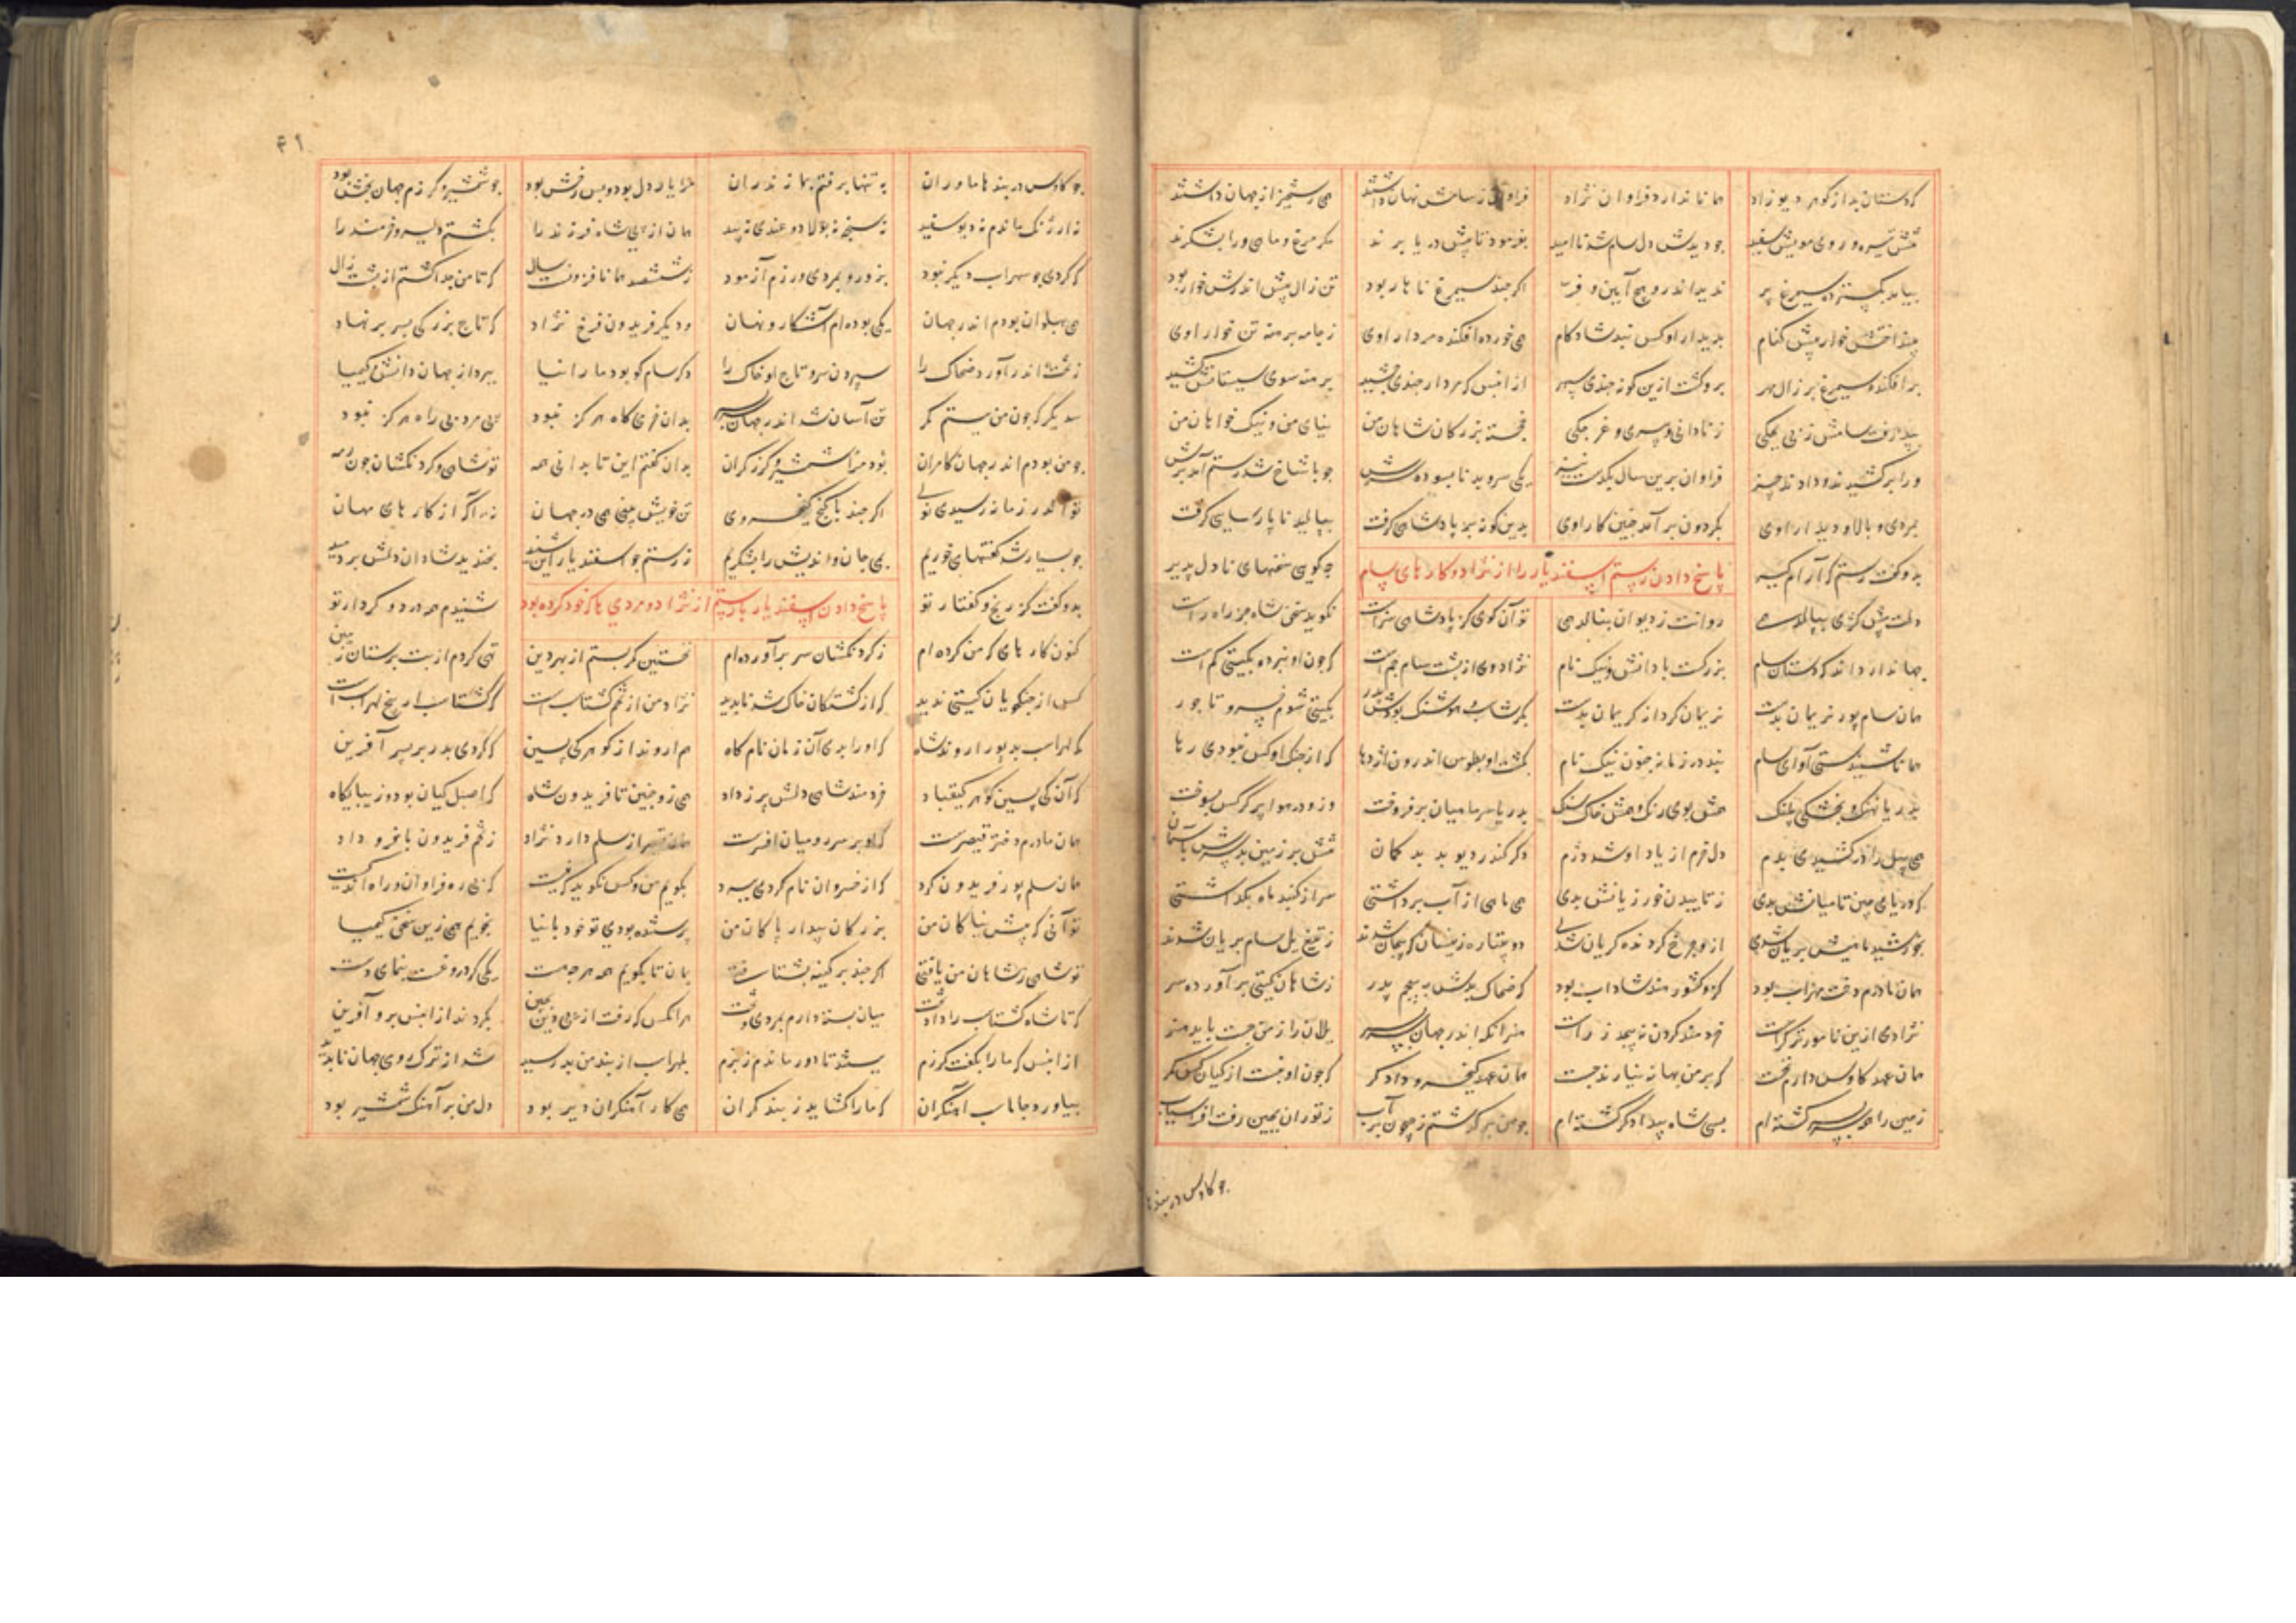 که دستان بد از گوهر دیوزاد همانا ندارد فراوان نژاد فراوان ز سامش نهان داشتند همی رستخیز از جهان داشتند
تنش تیره و روی و مویش سفید چو دیدش دل سام شد ناامید بفرمود تا پیش دریا برند مگر مرغ و ماهی ورا بشکرند
بیامد بگسترده سیمرغ پر ندید اندرو هیچ آیین و فر اگر چند سیمرغ ناهار بود تن زال پیش اندرش خوار بود
بینداختش خوار پیش کنام بدیدار او کس نبد شادکام همی خورد افکنده مردار اوی ز جامه برهنه تن خوار اوی
برافکند سیمرغ بر زال مهر برو گشت ازین گونه چندی سپهر از ان پس که مردار چندی چشید برهنه سوی سیستانش کشید
پذیرفت سامش ز بی بچگی ز نادانی و پیری و غرچگی خجسته بزرگان شاهان من نیای من و نیک خواهان من
ورا برکشیدند و دادند چیز فراوان برین سال بگذشت نیز یکی سرو بد نابسوده سرش چو با شاخ شد رستم آمد برش
بمردی و بالا و دیدار اوی بگردون برآمد چنین کار اوی بدین گونه بر پادشاهی گرفت ببالید ناپارسایی گرفت
بدو گفت رستم که آرام گیر پاسخ دادن رستم اسفندیار را از نژاد و کارهای سام چه گویی سخنهای نادل پذیر
دلت پیش کژی ببالد همی روانت ز دیوان بنالد همی تو آن گوی کز پادشاهی سزاست نگوید سخن شاه جز راه راست
جهاندار داند که دستان سام بزرگست با دانش و نیک نام
همان سام پور نریمان بدست نریمان گرد از کریمان بدست بگیتی شوم خسرو تاجور
همانا شنیدستی آوای سام نبد در زمانه چنو نیک نام بکشت او بطوس اندرون اژدها که از چنگ او کس نبودی رها
بدریا نهنگ و بخشکی پلنگ بدریا سر ماهیان برفروخت وزو در هوا پر کرکس بسوخت
همی پیل را درکشیدی بدم دل خرم از یاد او شد دژم دگر کندر دیو بد بدگمان تنش بر زمین و سرش بآسمان
که دریای چین تا میانش بدی ز تابیدن خور زیانش بدی همی ماهی از آب برداشتی سر از گنبد ماه بگذاشتی
بخورشید ماهیش بریان شدی ازو چرخ گردنده گریان شدی دو پتیاره زینسان که پیچان شدند ز تیغ یل سام بریان شدند
همان مادرم دخت مهراب بود کزو کشور هند شاداب بود که ضحاک بودش به پنجم پدر ز شاهان گیتی برآورده سر
نژادی ازین نامورتر کراست خردمند گردن نپیچد ز راست هنر آنکه اندر جهان سربسر یلان را ز من جست باید هنر
همان عهد کاوس دارم نخست که بر من بهانه نیارند جست همان عهد کیخسرو دادگر که چون او نبست از کیان کس کمر
زمین را همه سربسر گشته‌ام بسی شاه بیدادگر کشته‌ام چو من برگذشتم ز جیحون بر آب ز توران بچین رفت افراسیاب
چو کاوس در بند ها
۴۱
چو کاوس در بند هاماوران به تنها برفتم بمازندران مرا یار دل بود و بس رخش بود چو شمشیر و گرزم جهان بخش بود
نه ارژنگ ماندم نه دیو سفید نه سنجه نه پولاد و غندی نه بید همان از پی شاه فرزند را بکشتم دلیر و خردمند را
که گردی چو سهراب دیگر نبود بزور و بمردی و رزم آزمود ز ششصد همانا فزونست سال که تا من جدا گشتم از پشت زال
همی پهلوان بودم اندر جهان یکی بوده‌ام آشکار و نهان و دیگر فریدون فرخ نژاد که تاج بزرگی بسر بر نهاد
ز تخت اندر آورد ضحاک را سپردن سر و تاج او خاک را دگر سام کو بود ما را نیا ببرد از جهان دانش و کیمیا
سدیگر که چون من ببستم کمر تن آسان شد اندر جهان بدان خرمی گاه هرگز نبود پی مرد بی راه هرگز نبود
چو من بودم اندر جهان کامران بود مرا شمشیر و گرز گران بدان گفتم این تا بدانی همه تو شاهی و گردنکشان چون رمه
تو اندر زمانه رسیدی نوی اگر چند با گنج کیخسروی تن خویش بینی همی در جهان نه آگه از کارهای مهان
چو بسیار شد گفتها می خوریم بمی جان و اندیش را بشکریم ز رستم چو اسفندیار این شنید بخندید شادان دلش بردمید
بدو گفت کز رنج و گفتار تو پاسخ دادن اسفندیار با رستم از نژاد و مردی ها که خود کرده بود شنیدم همه درد و کردار تو
کنون کارهایی که من کرده‌ام ز گردنکشان سر برآورده‌ام نخستین کمر بستم از بهر دین تهی کردم از بت پرستان زمین
کس از جنگجویان گیتی ندید که از کشتگان خاک شد ناپدید نژاد من از تخم گشتاسبست که گشتاسب از تخم لهراسبست
که لهراسب بد پور اروند شاه که او را بدی آن زمان نام گاه هم اروند از گوهر کی پسین که کردی پدر بر پسر آفرین
که آن کی پسین گوهر کیقباد خردمند شاهی دلش پر ز داد همی رو چنین تا فریدون شاه که اصل کیان بود و زیبای گاه
همان مادرم دختر قیصرست که او بر سر رومیان افسرست همان قیصر از سلم دارد نژاد ز تخم فریدون با فر و داد
همان سلم پور فریدون گرد که از خسروان نام گردی ببرد بگویم من و کس نگوید که نیست که بی ره فراوان و راه اندکیست
تو آنی که پیش نیاکان من بزرگان بیدار پاکان من پرستنده بودی تو خود با نیا نجویم همی زین سخن کیمیا
تو شاهی ز شاهان من یافتی اگر چند بر کینه بشتافتی بمان تا بگویم همه هر چه هست یکی گر دروغست بنمای دست
که تا شاه گشتاسب را داد تخت میان بسته دارم بمردی و بخت هر آنکس که رفت از پی دین بچین بکردند از ان پس برو آفرین
از ان پس که ما را بگفت گرزم ببستند تا دور ماندم ز بزم بلهراسب از بند من بد رسید شد از ترک روی جهان ناپدید
بیاورد جاماسب آهنگران که ما را گشاید ز بند گران همی کار آهنگران دیر بود دل من بر آهنگ شمشیر بود